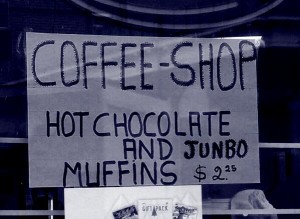 COFFEE-SHOP
HOT CHOCOLATE
AND JUNBO
MUFFINS $2.25